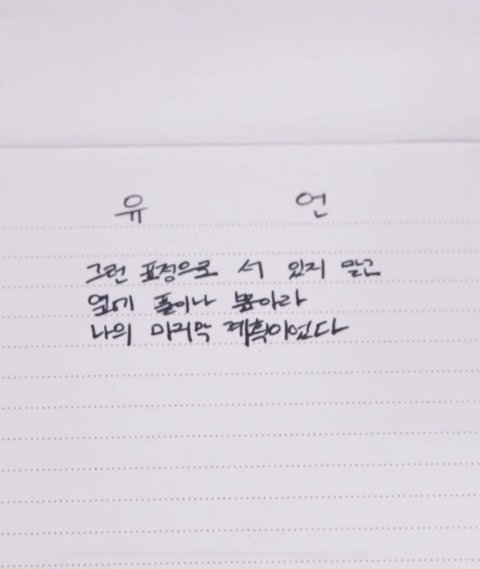 유 언
그런 표정으로 서 있지 말고
옆에 풀이나 뽑아라
나의 마지막 계획이었다